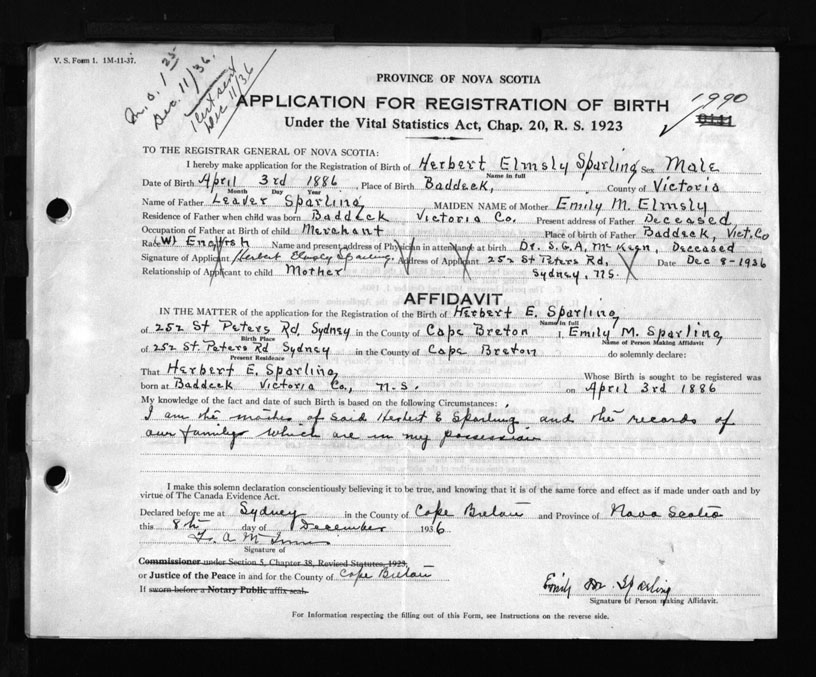 V. S. Form 1. 1M-11-37.
M.O. 1 25
Dec. 11/36.
1 Cert sent
Dec 11/36
PROVINCE OF NOVA SCOTIA
APPLICATION FOR REGISTRATION OF BIRTH
1990
Under the Vital Statistics Act, Chap. 20, R. S. 1923
TO THE REGISTRAR GENERAL OF NOVA SCOTIA:
I hereby make application for the Registration of Birth of Herbert Elmsly Sparling Sex Male
Name in full
Date of Birth April 3rd 1886, Place of Birth Baddeck, County of Victoria
Month Day Year
Name of Father Leaver Sparling MAIDEN NAME of Mother Emily M. Elmsly
Residence of Father when child was born Baddeck Victoria Co. Present address of Father Deceased
Occupation of Father at Birth of child Merchant Place of birth of Father Baddeck, Vict. Co
Race W) English Name and present address of Physician in attendance at birth Dr. S.G.A. McKeen, Deceased
Signature of Applicant Herbert Elmsly Sparling Address of Applicant 252 St Peters Rd, Date Dec 8-1936
Relationship of Applicant to child Mother Sydney, N.S.
AFFIDAVIT
IN THE MATTER of the application for the Registration of Birth of Herbert E. Sparling
Name in full
of 252 St Peters Rd, Sydney in the County of Cape Breton I, Emily M. Sparling
Birth Place Name of Person Making Affidavit
of 252 St. Peters Rd Sydney in the County of Cape Breton do solemnly declare:
Present Residence
That Herbert E. Sparling Whose Birth is sought to be registered was
born at Baddeck Victoria Co., N.S. on April 3rd 1886
My knowledge of the fact and date of such Birth is based on the following Circumstances:
I am the mother of said Herbert E Sparling and the records of
our family which are in my possession
I make this solemn declaration conscientiously believing it to be true, and knowing that it is of the same force and effect as if made under oath and by
virtue of The Canada Evidence Act.
Declared before me at Sydney in the County of Cape Breton and Province of Nova Scotia
this 8th day of December 1936.
Signature of
Commissioner under Section 5, Chapter 38, Revised Statutes, 1923
or Justice of the Peace in and for the County of Cape Breton
If sworn before a Notary Public affix seal.
Emily M. Sparling
Signature of Person making Affidavit.
For Information respecting the filling out of this Form, see Instructions on the reverse side.